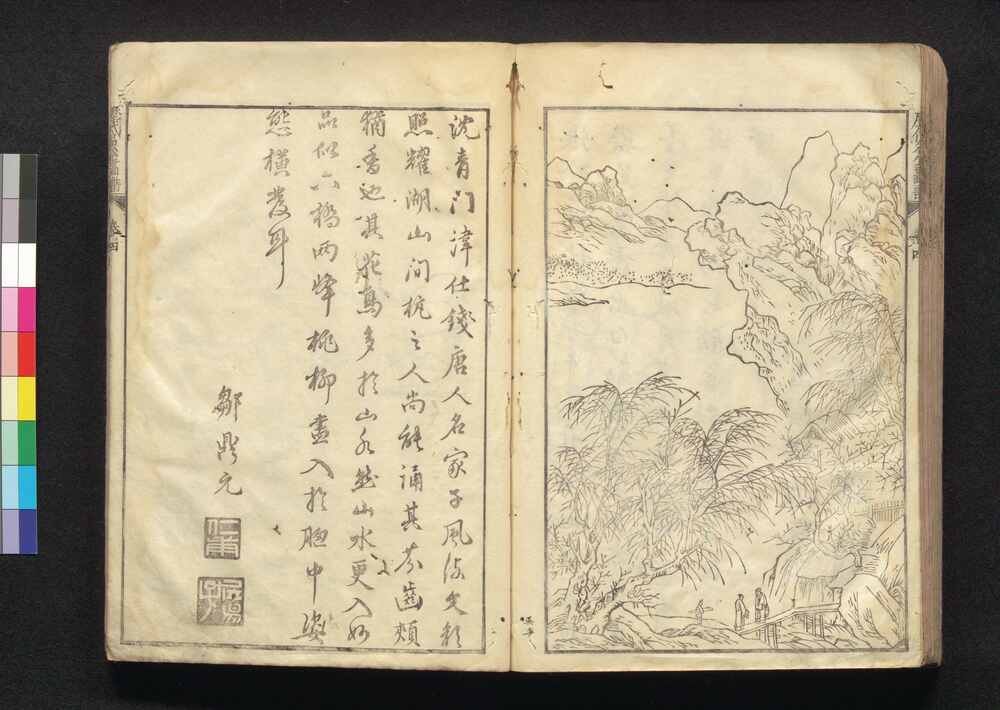 沈青門津仕錢唐人名家子風流文彩
照耀湖山間杭之人尚能誦其芬齒頰
猶香也其花鳥多於山水然山水更入妙
品似六橋兩峰桃柳盡入於胸中姿
態橫發耳
鄒鼎元
卷四